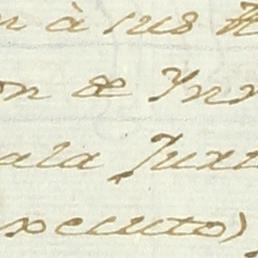 n à sus
on de Ynx
ala Juxt
xecuto)